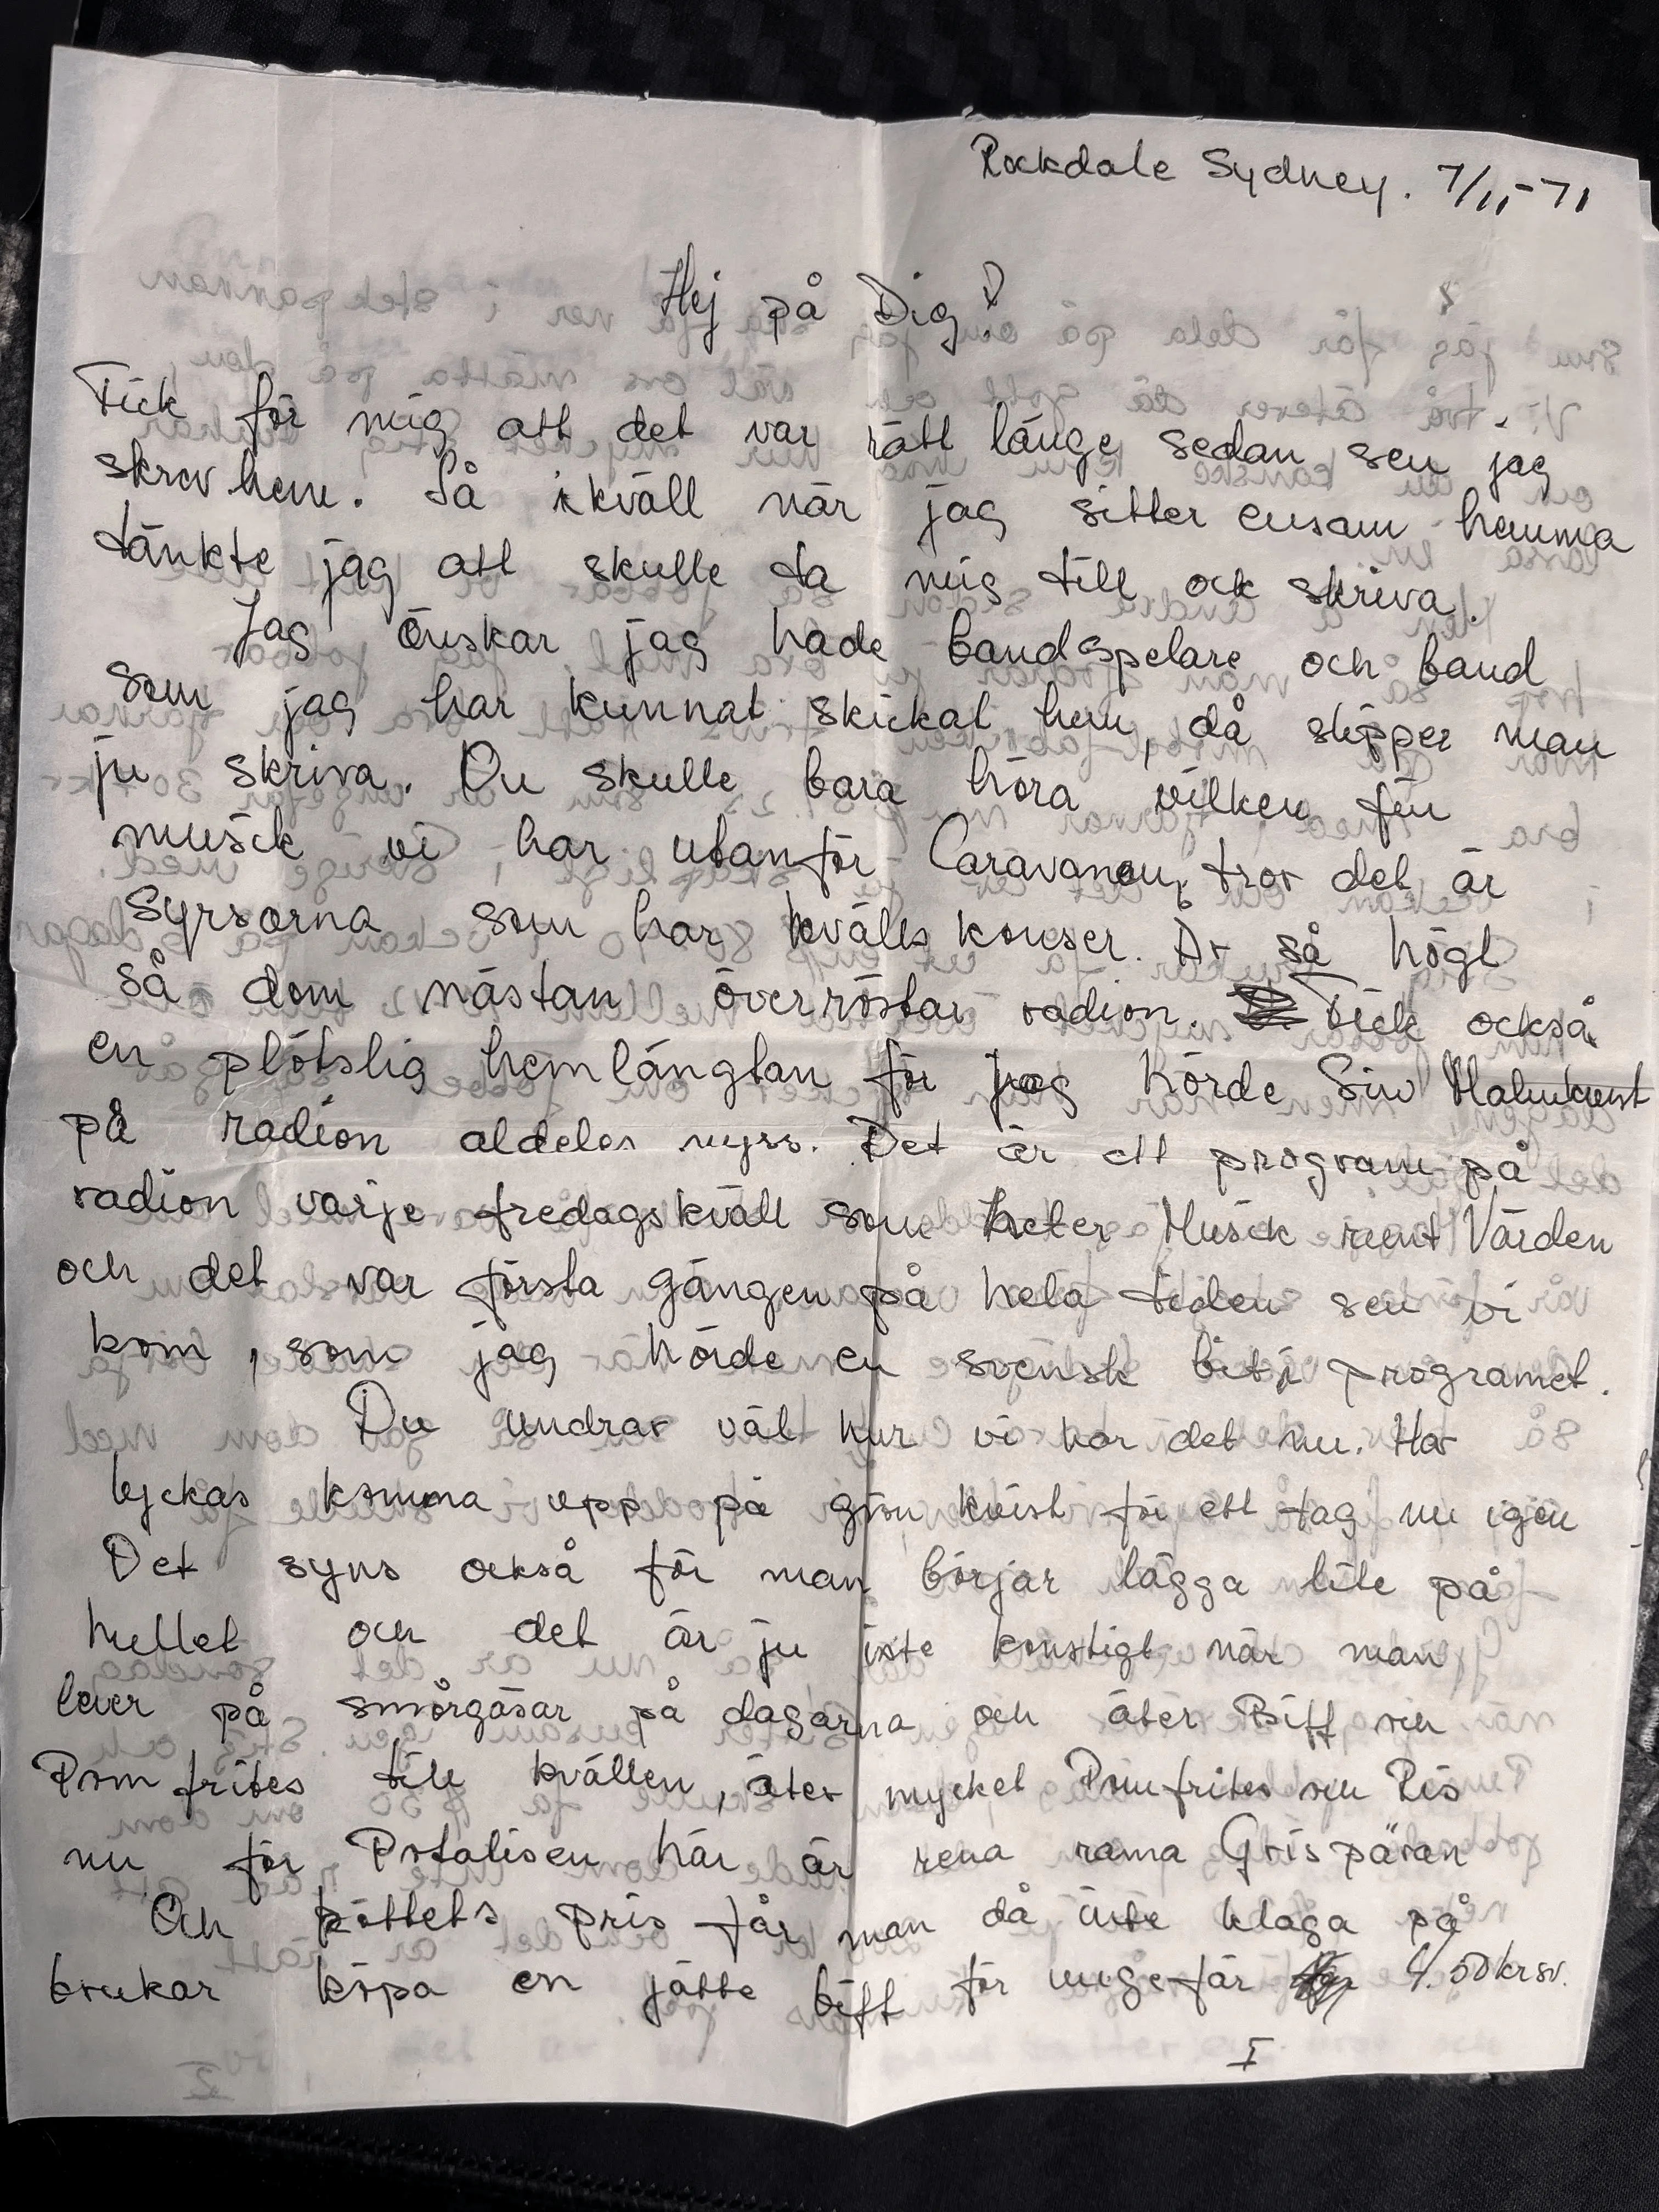 Rockdale Sydney. 7/11-71
Hej på Dig!
Fick för mig att det var rätt länge sedan sen jag
skrev hem. Så ikväll när jag sitter ensam hemma
tänkte jag att skulle ta mig till ock skriva.
Jag önskar jag hade bandspelare och band
som jag har kunnat skickat hem, då slipper man
ju skriva. Du skulle bara höra vilken fin
musik vi har utanför Caravanen, tror det är
Syrsorna som har kvälls konser. Är så högt
så dom nästan överröstar radion. Fick också
en plötslig hemlängtan för jag hörde Siw Malmkvist
på radion aldeles nyss. Det är ett program på
radion varje fredagskväll som heter Musik runt Världen
och det var första gången på hela tiden sen vi
kom, som jag hörde en svensk bit i programet.
Du undrar väl hur vi har det nu. Har
lyckas komma upp på grön kvist för ett tag nu igen
Det syns också för man börjar lägga lite på
hullet och det är ju inte konstigt när man
lever på smörgåsar på dagarna och äter Biff och
Pom frites till kvällen, äter mycket Pomfrites och Ris
nu för Potatisen här är rena rama Grispäran
Och köttets pris får man då inte klaga på
brukar köpa en jätte biff för ungefär 4.50 kr sv.
I